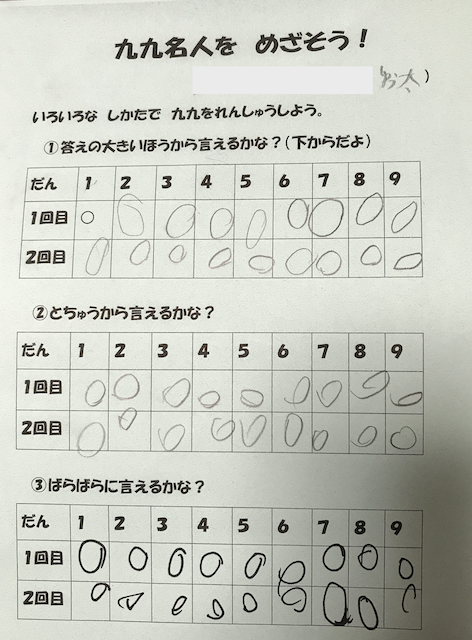 九九名人を めざそう！
）
いろいろな しかたで 九九をれんしゅうしよう。
①答えの大きいほうから言えるかな？（下からだよ）
だん 1 2 3 4 5 6 7 8 9
1回目 ○ ○ ○ ○ ○ ○ ○ ○ ○
2回目 ○ ○ ○ ○ ○ ○ ○ ○ ○
②とちゅうから言えるかな？
だん 1 2 3 4 5 6 7 8 9
1回目 ○ ○ ○ ○ ○ ○ ○ ○ ○
2回目 ○ ○ ○ ○ ○ ○ ○ ○ ○
③ばらばらに言えるかな？
だん 1 2 3 4 5 6 7 8 9
1回目 ○ ○ ○ ○ ○ ○ ○ ○ ○
2回目 ○ ○ ○ ○ ○ ○ ○ ○ ○